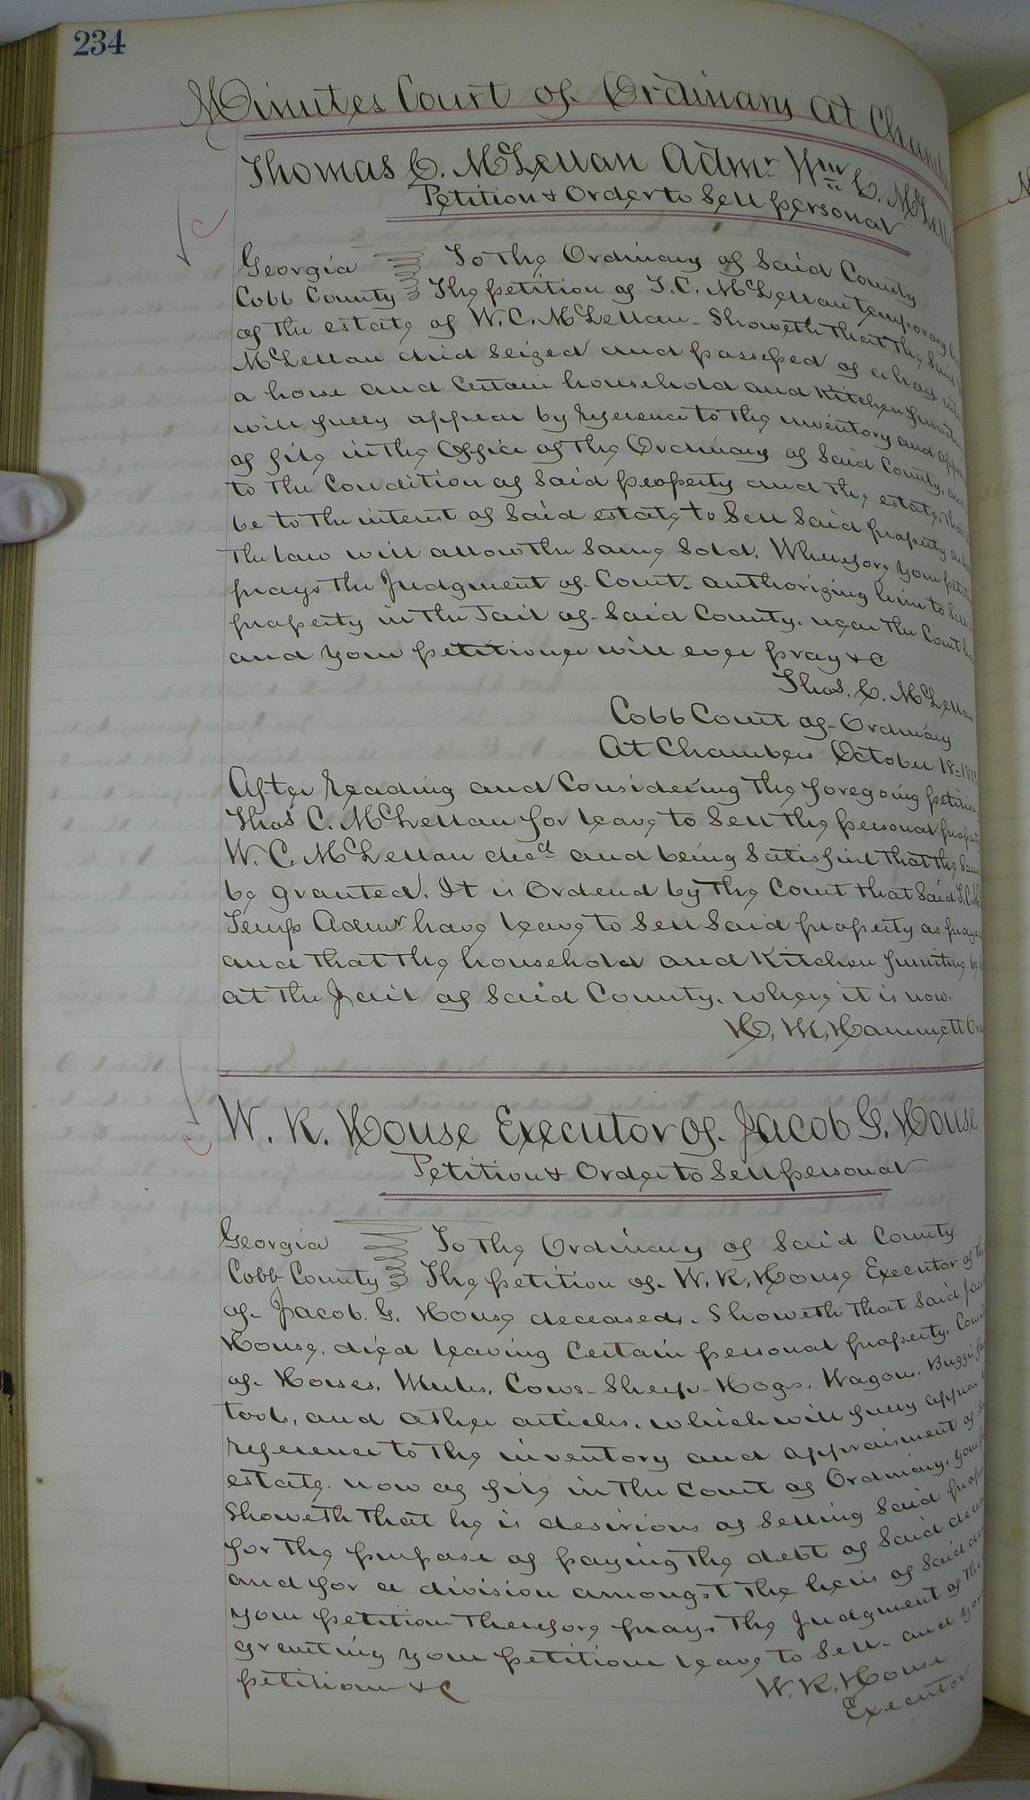 234
Minutes Court of Ordinary at Cham
Thomas C. McLellan Admr Wm C. McLella
Petition & Order to Sell personal
Georgia To the Ordinary of Said County
Cobb County The petition of T. C. McLellan temporary
of the estate of W. C. McLellan - Showeth that the Said
McLellan died Seized and possessed of a
a horse and Certain household and Kitchen
will fully appear by reference to the inventory and
of file in the Office of the Ordinary of Said County, and
to the Condition of Said property and the estate,
be to the interest of Said estate to Sell Said property
the law will allow the Same Sold. Wherefore your
prays the Judgment of Court authorizing him to
property in the Jail of Said County. near the Court
and your petitioner will ever pray &c
Thos. C. McLellan
Cobb Court of Ordinary
At Chambers October 18-18
After reading and Considering the foregoing
Thos C. McLellan for leave to Sell the personal
W. C. McLellan decd and being Satisfied that the
be granted. It is Ordered by the Court that Said
Temp Admr have leave to Sell Said property as
and that the household and Kitchen furniture
at the Jail of Said County. where it is now.
H. M. Hammett
W. R. House Executor of Jacob G. House
Petition & Order to Sell personal
Georgia To the Ordinary of Said County
Cobb County The petition of W. R. House Executor of
of Jacob G. House deceased. Showeth that Said
House, died leaving Certain personal property.
of Horses, Mules, Cows - Sheep - Hogs. Wagon. Buggy
tools, and other articles. which will fully appear
reference to the inventory and appraisment of
estate now of file in the Court of Ordinary.
Showeth that he is desirious of Selling Said
for the purpose of paying the debt of Said
and for a division amongst the heirs of Said
your petition Therefore prays the Judgment of
granting your petitione leave to Sell - and
petitioner &c
W. R. House
Executor